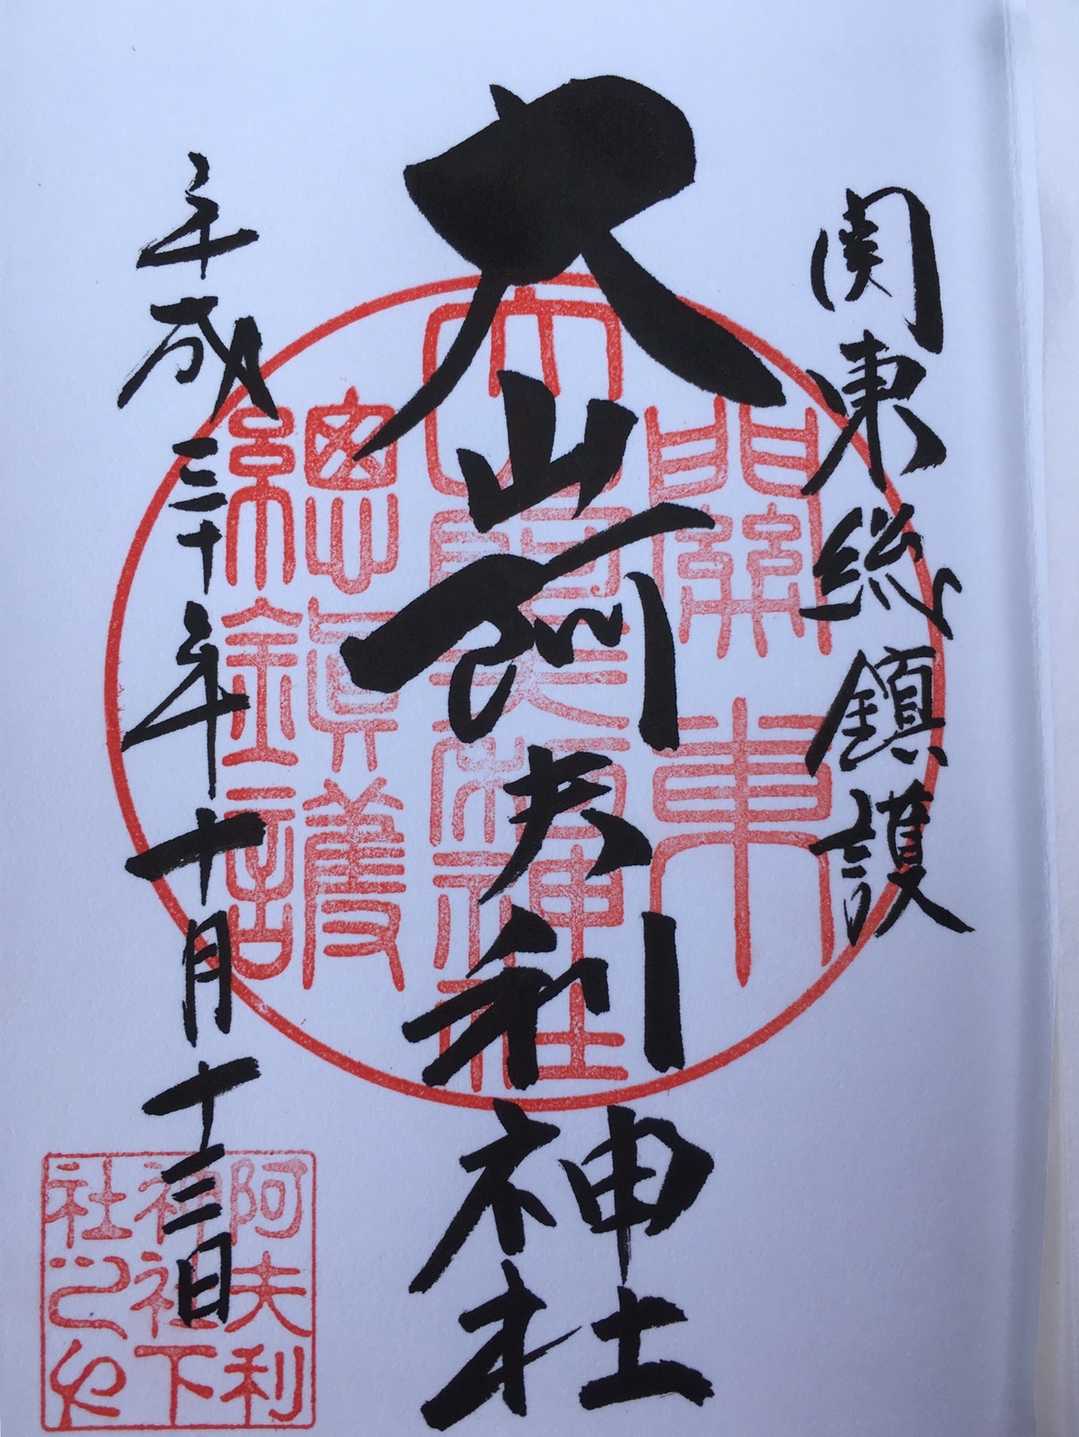 関東総鎮護
大山阿夫利神社
平成三十年十月十三日
關東
總鎭護
阿夫利
神社下
社之印